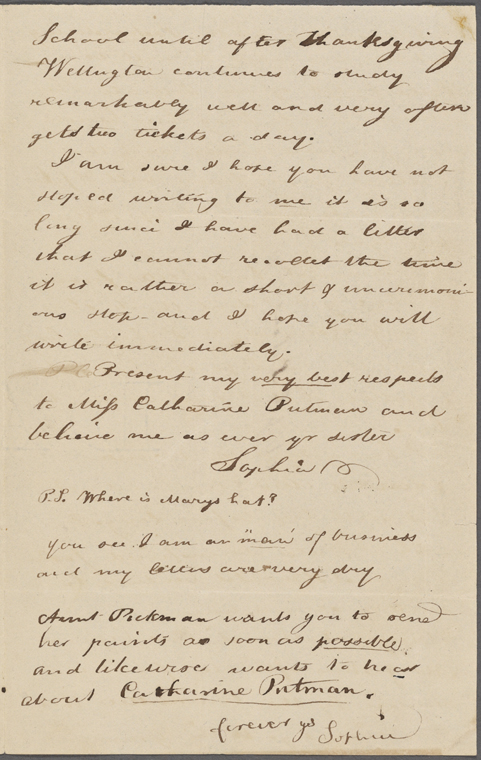 School until after Thanksgiving
Wellington continues to study
remarkably well and very often
gets two tickets a day.
I am sure I hope you have not
stoped writing to me it is so
long sinci I have had a letter
that I cannot recollect the time
it is rather a short & unceremoni
ous stop - and I hope you will
write immediately.
Present my very best respects
to Miss Catharine Putman and
believe me as ever yr sister
Sophia
P.S. Where is Marys hat?
you see I am an "man" of business
and my letters are very dry
Aunt Pickman wants you to send
her paints as soon as possible.
and likewise wants to hear
about Catharine Putman.
forever yrs Sophia